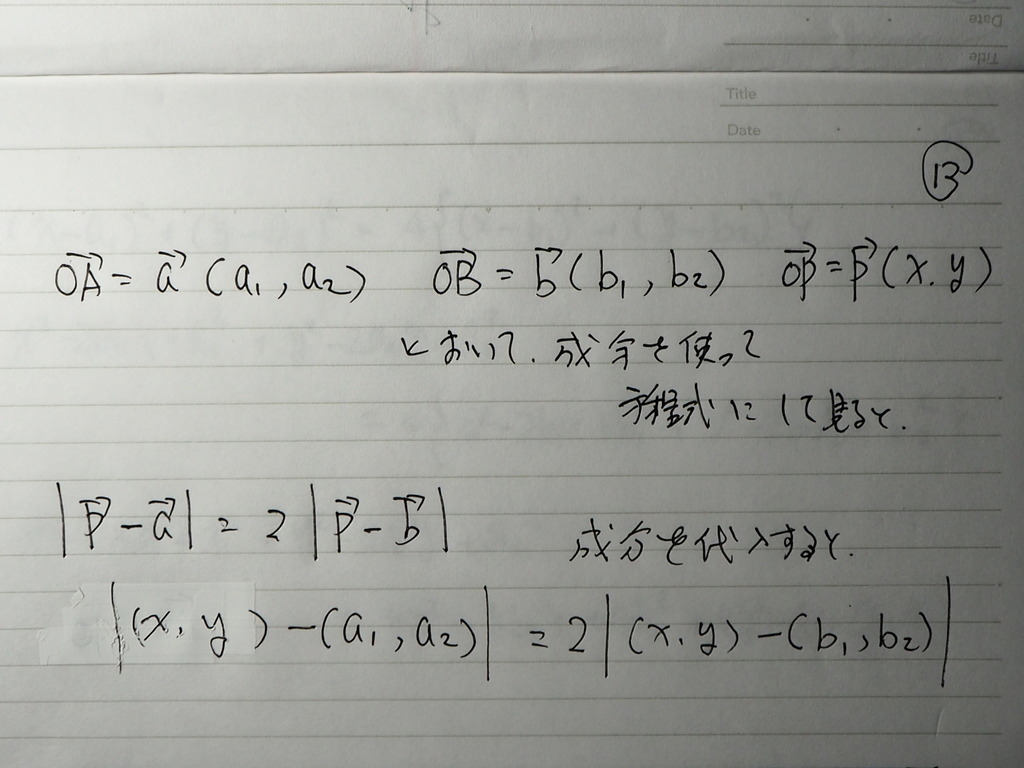 Date
Title
Title
Date
13
OA→ = a→ (a₁, a₂) OB→ = b→ (b₁, b₂) OP→ = p→ (x, y)
とおいて、成分を使って
方程式にして見ると、
|p→ - a→| = 2 |p→ - b→| 成分を代入すると、
|(x, y) - (a₁, a₂)| = 2 |(x, y) - (b₁, b₂)|